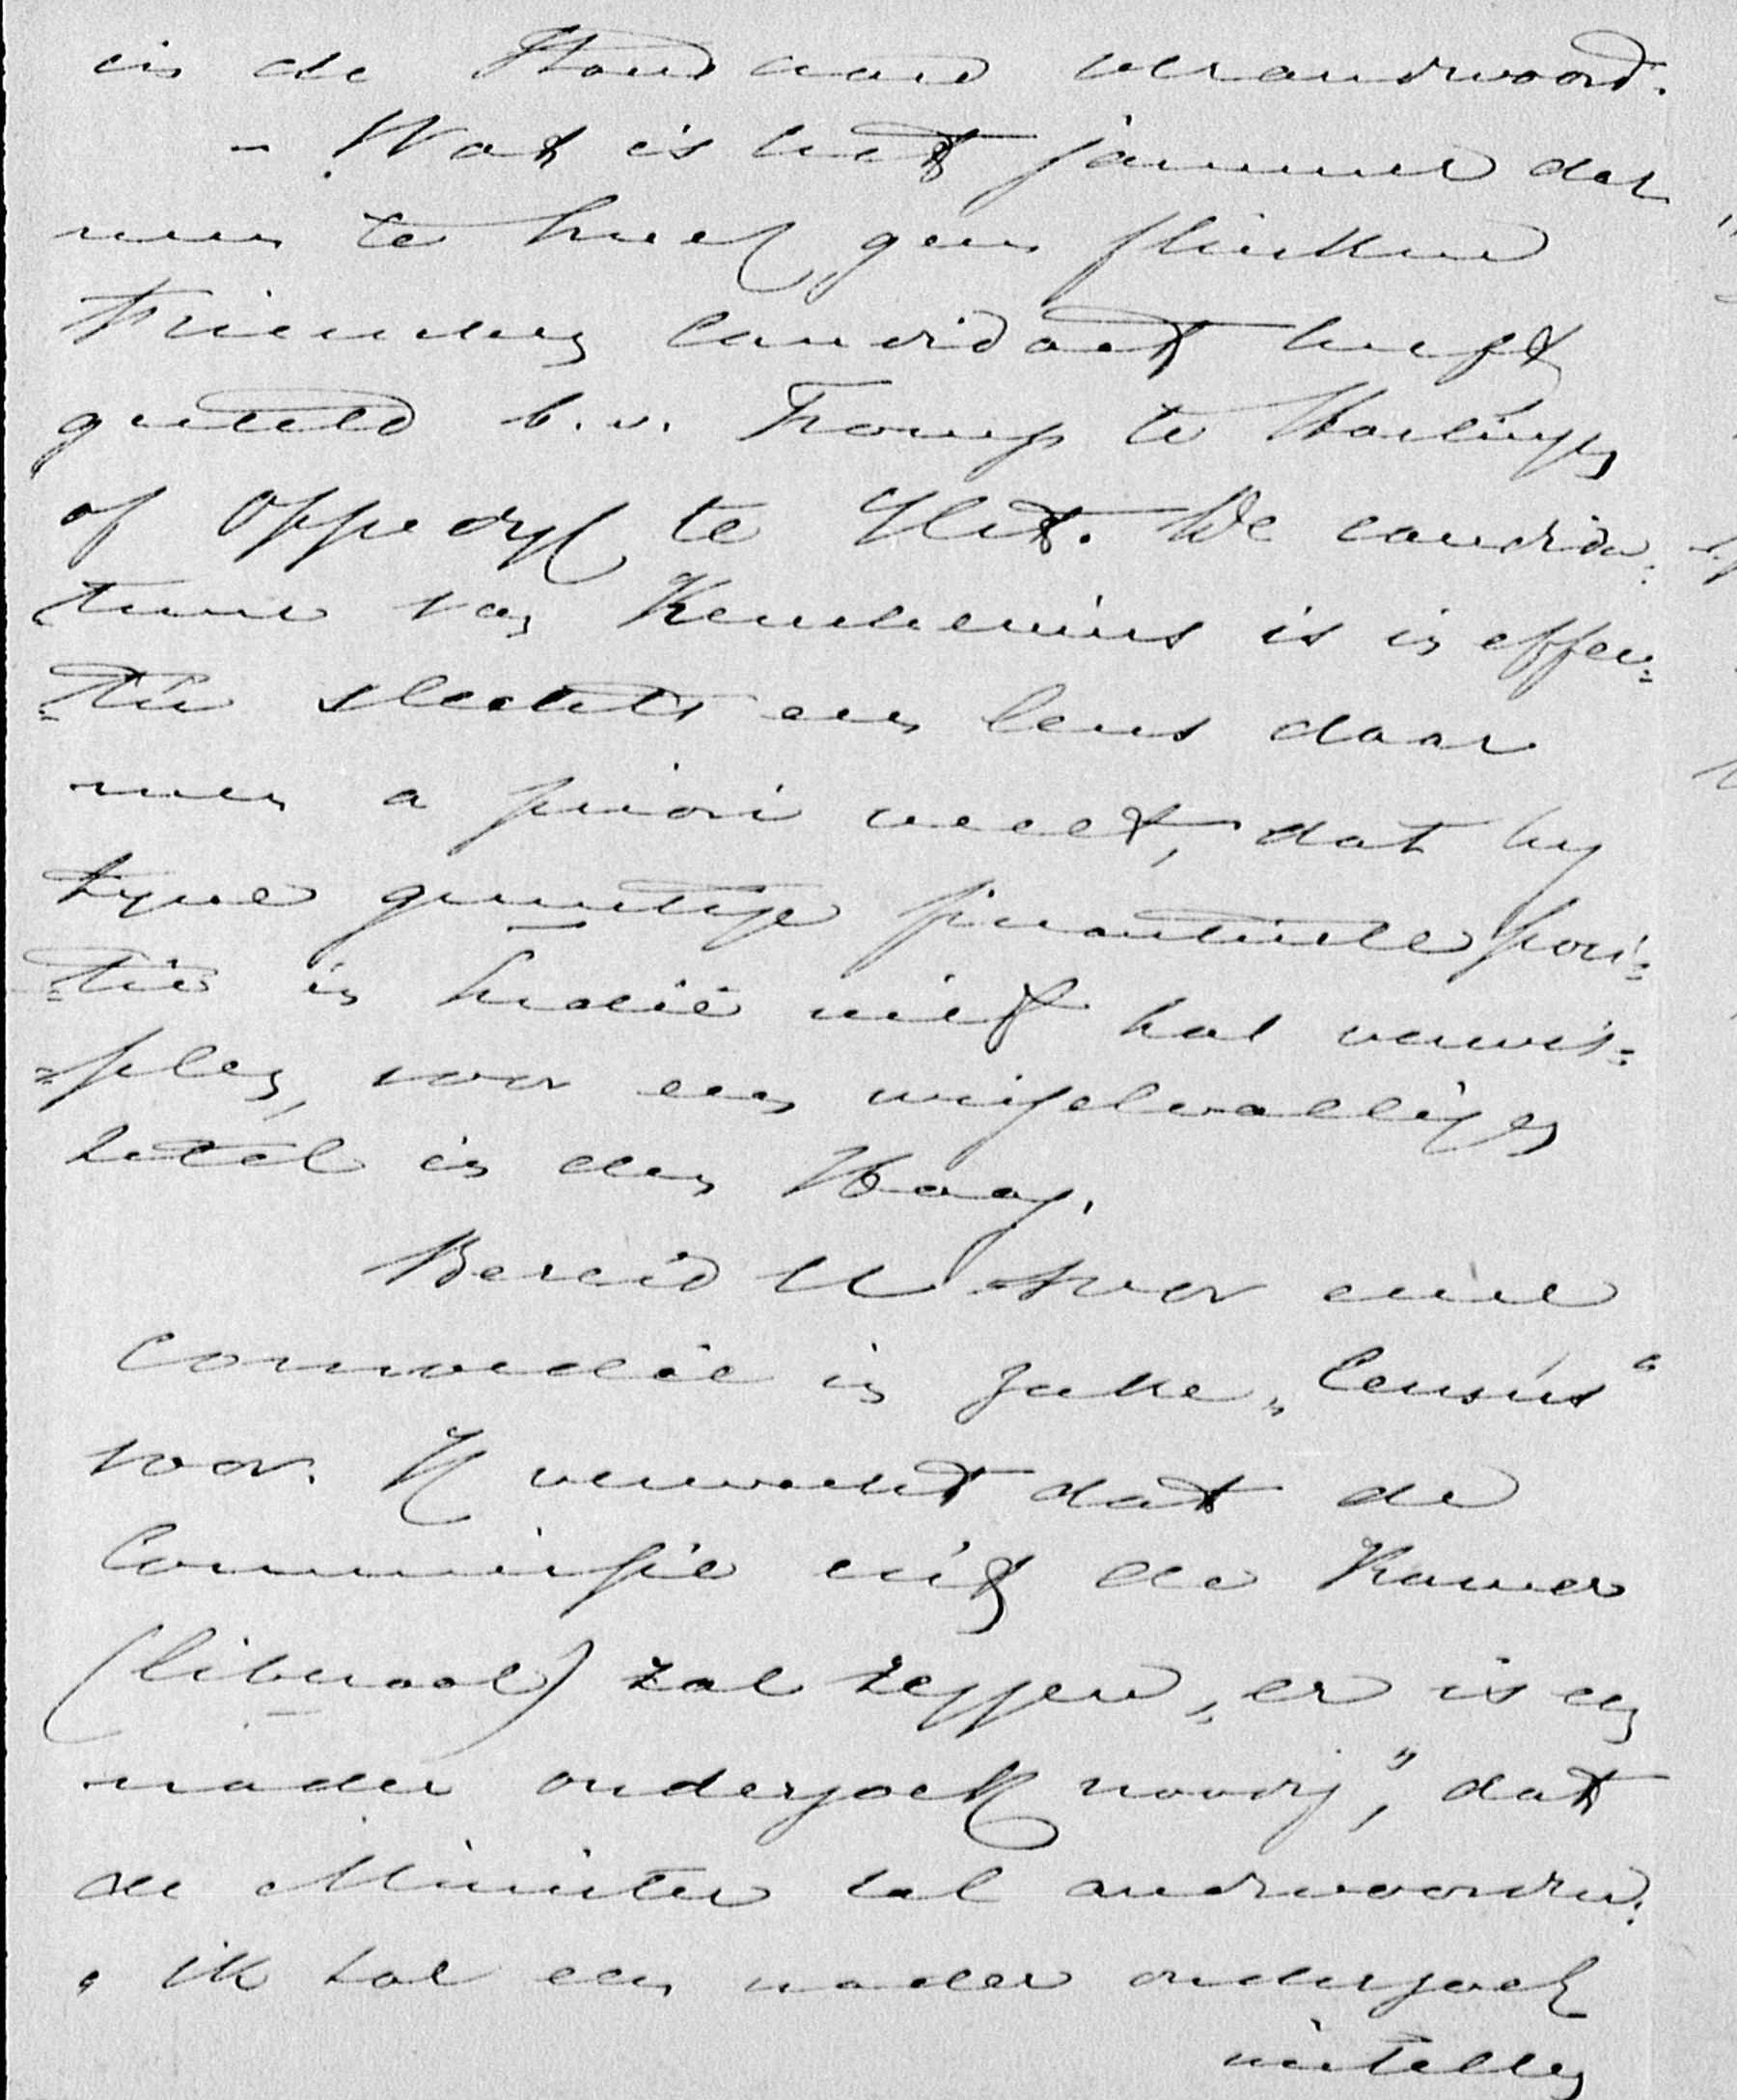 in de Standaard verandwoord.
- Wat is het jammer dat
men te Sneek geen flinken
Frieschen candidaat heeft
gesteld b.v. Tromp te Harlingen
of Oppedyk te Ylst. De candida-
tuur van Keuchenius is in effec-
=tie slechts een leus daar
men a priori weet, dat hy
zyne gunstige finantieele posi=
=tie in Indië niet zal verwis=
=slen, voor een wisselvalligen
zetel in den Haag.
Bereid U voor eene
commoedie in zake „Census"
voor. Ik verwacht dat de
Commissie uit de Kamer
(liberaal) zal zeggen „er is een
nader onderzoek noodig", dat
de Minister zal andwoorden:
„ik zal een nader onderzoek
instellen